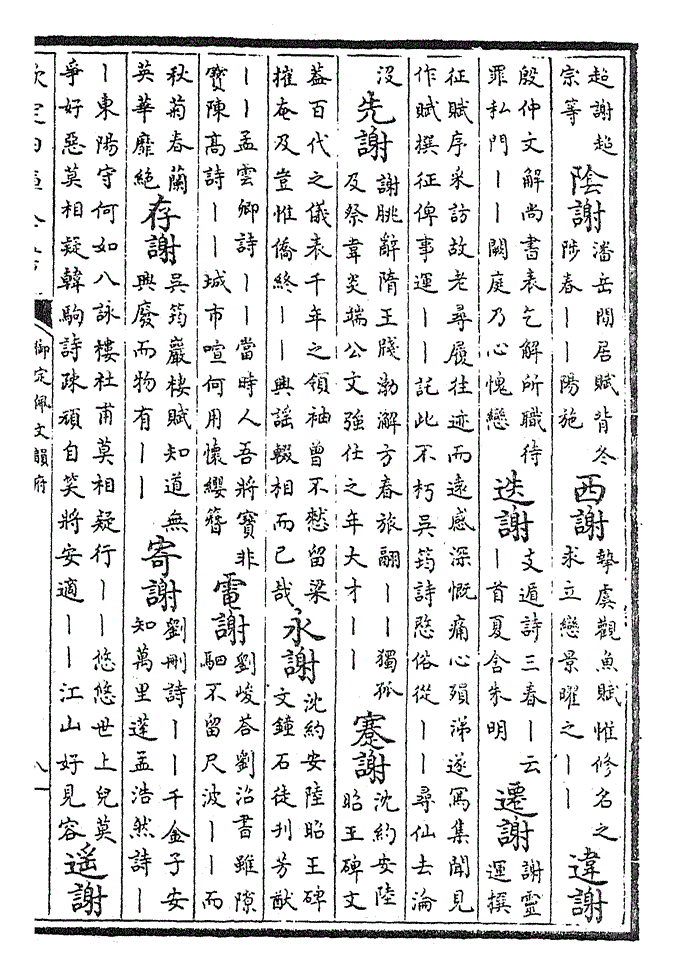 超謝超宗等陰謝潘岳閒居賦背冬涉春丨丨陽施西謝摯虞觀魚賦惟修名之求立戀景曜之丨丨違謝
殷仲文解尚書表乞解所職待罪私門丨丨闕庭乃心愧戀迭謝支遁詩三春丨云丨首夏含朱明遷謝謝靈運撰
征賦序采訪故老尋履往迹而遠感深慨痛心殞涕遂寫集聞見作賦撰征俾事運丨丨託此不朽吳筠詩愍俗從丨丨尋仙去淪
没先謝謝朓辭隋王牋渤解方春旅翮丨丨獨孤及祭韋炎端公文強仕之年大才丨丨蹇謝沈約安陸昭王碑文
葢百代之儀表千年之領袖曾不憗留梁摧奄及豈惟僑終丨丨興謠輟相而已哉永謝沈約安陸昭王碑文鐘石徒刊芳猷
丨丨孟雲卿詩丨丨當時人吾將寶非寶陳高詩丨丨城市喧何用懷纓簪電謝劉峻答劉沼書雖隙駟不留尺波丨丨而
秋菊春蘭英華靡絶存謝吳筠巖棲賦知道無興廢而物有丨丨寄謝劉刪詩丨丨千金子安知萬里蓬孟浩然詩丨
丨東陽守何如八詠樓杜甫莫相疑行丨丨悠悠世上兒莫爭好惡莫相疑韓駒詩疎頑自笑將安適丨丨江山好見容遥謝
御定佩文韻府